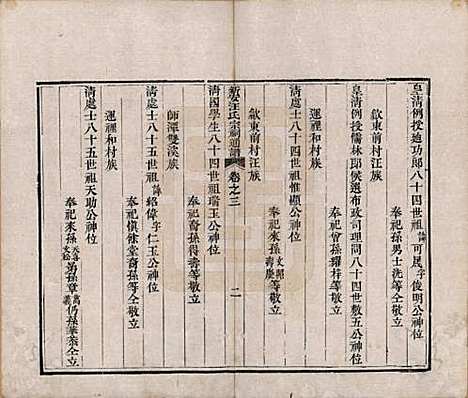 皇清例授迪功郎八十四世祖諱可晟字俊明公神位
奉祀來孫男士洗等仝敬立
歙東前村汪族
皇清例授儒林郎候選布政司理問八十四世敷五公神位
奉祀曾孫耀梓等敬立
歙東前村汪族
清處士八十四世祖惟顯公神位
奉祀來孫文郎壽慶等敬立
新安汪氏宗祠通譜 卷之三 二
清國學生八十四世祖瑞玉公神位
奉祀裔孫得壽等敬立
師潭雙溪族
清處士八十五世祖諱緒偉字仁玉公神位
奉祀慎徐堂裔孫等仝敬立
運裡和村族
清處士八十五世祖天助公神位
奉祀來孫天喜文松弟孫章萬義仍孫華泰仝立